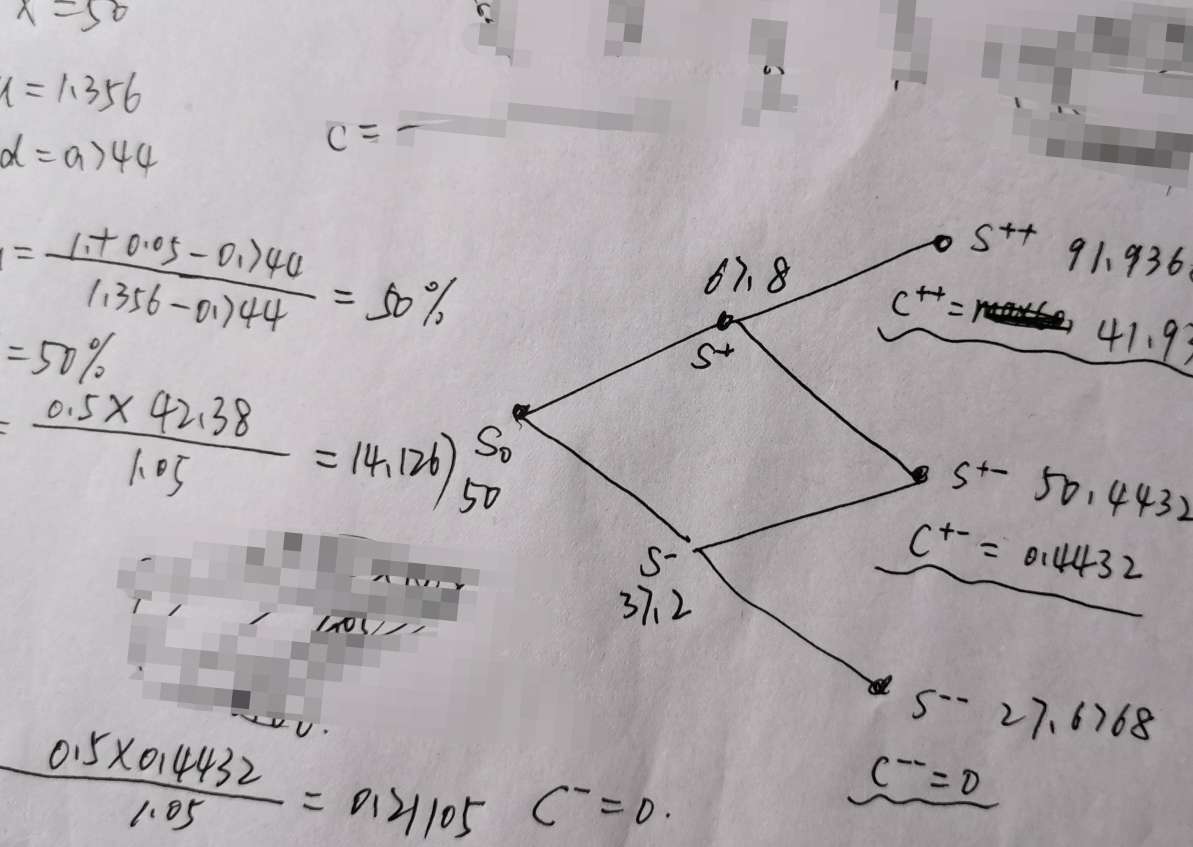 X = 50
u = 1.356
d = 0.744
C = -
= (1 + 0.05 - 0.744) / (1.356 - 0.744) = 50%
= 50%
= (0.5 × 42.38) / 1.05 = 14.126)
67.8
S+
S0
50
S-
37.2
S++ 91.936
C++ = 41.93
S+- 50.4432
C+- = 0.4432
S-- 27.6768
C-- = 0
(0.5 × 0.4432) / 1.05 = 0.21105 C- = 0.